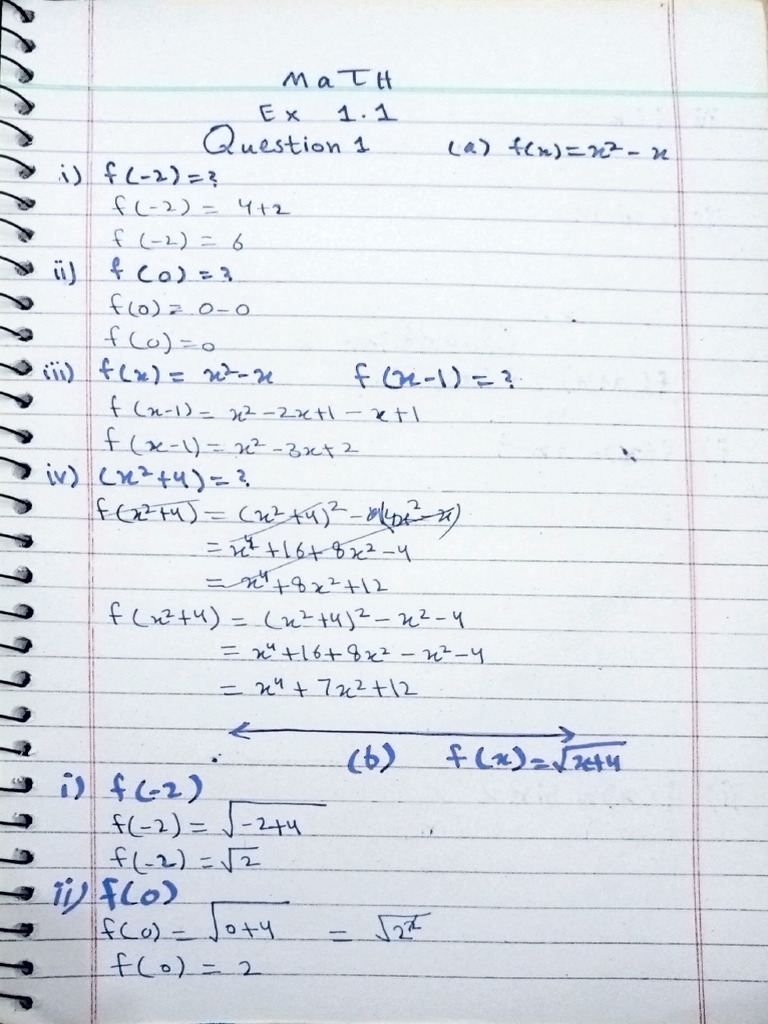 MaTH
Ex 1.1
Question 1 (a) f(x)=x²-x
i) f(-2)=?
f(-2) = 4+2
f(-2) = 6
ii) f(0)=?
f(0)= 0-0
f(0)=0
iii) f(x)= x²-x f(x-1)=?
f(x-1)= x²-2x+1-x+1
f(x-1)= x²-3x+2
iv) (x²+4)=?
f(x²+4) = (x²+4)²-
= x⁴+16+8x²-4
= x⁴+8x²+12
f(x²+4) = (x²+4)²-x²-4
= x⁴+16+8x²-x²-4
= x⁴+7x²+12
(b) f(x)=√x+4
i) f(-2)
f(-2)= √-2+4
f(-2)=√2
ii) f(0)
f(0)= √0+4 = √2²
f(0) = 2